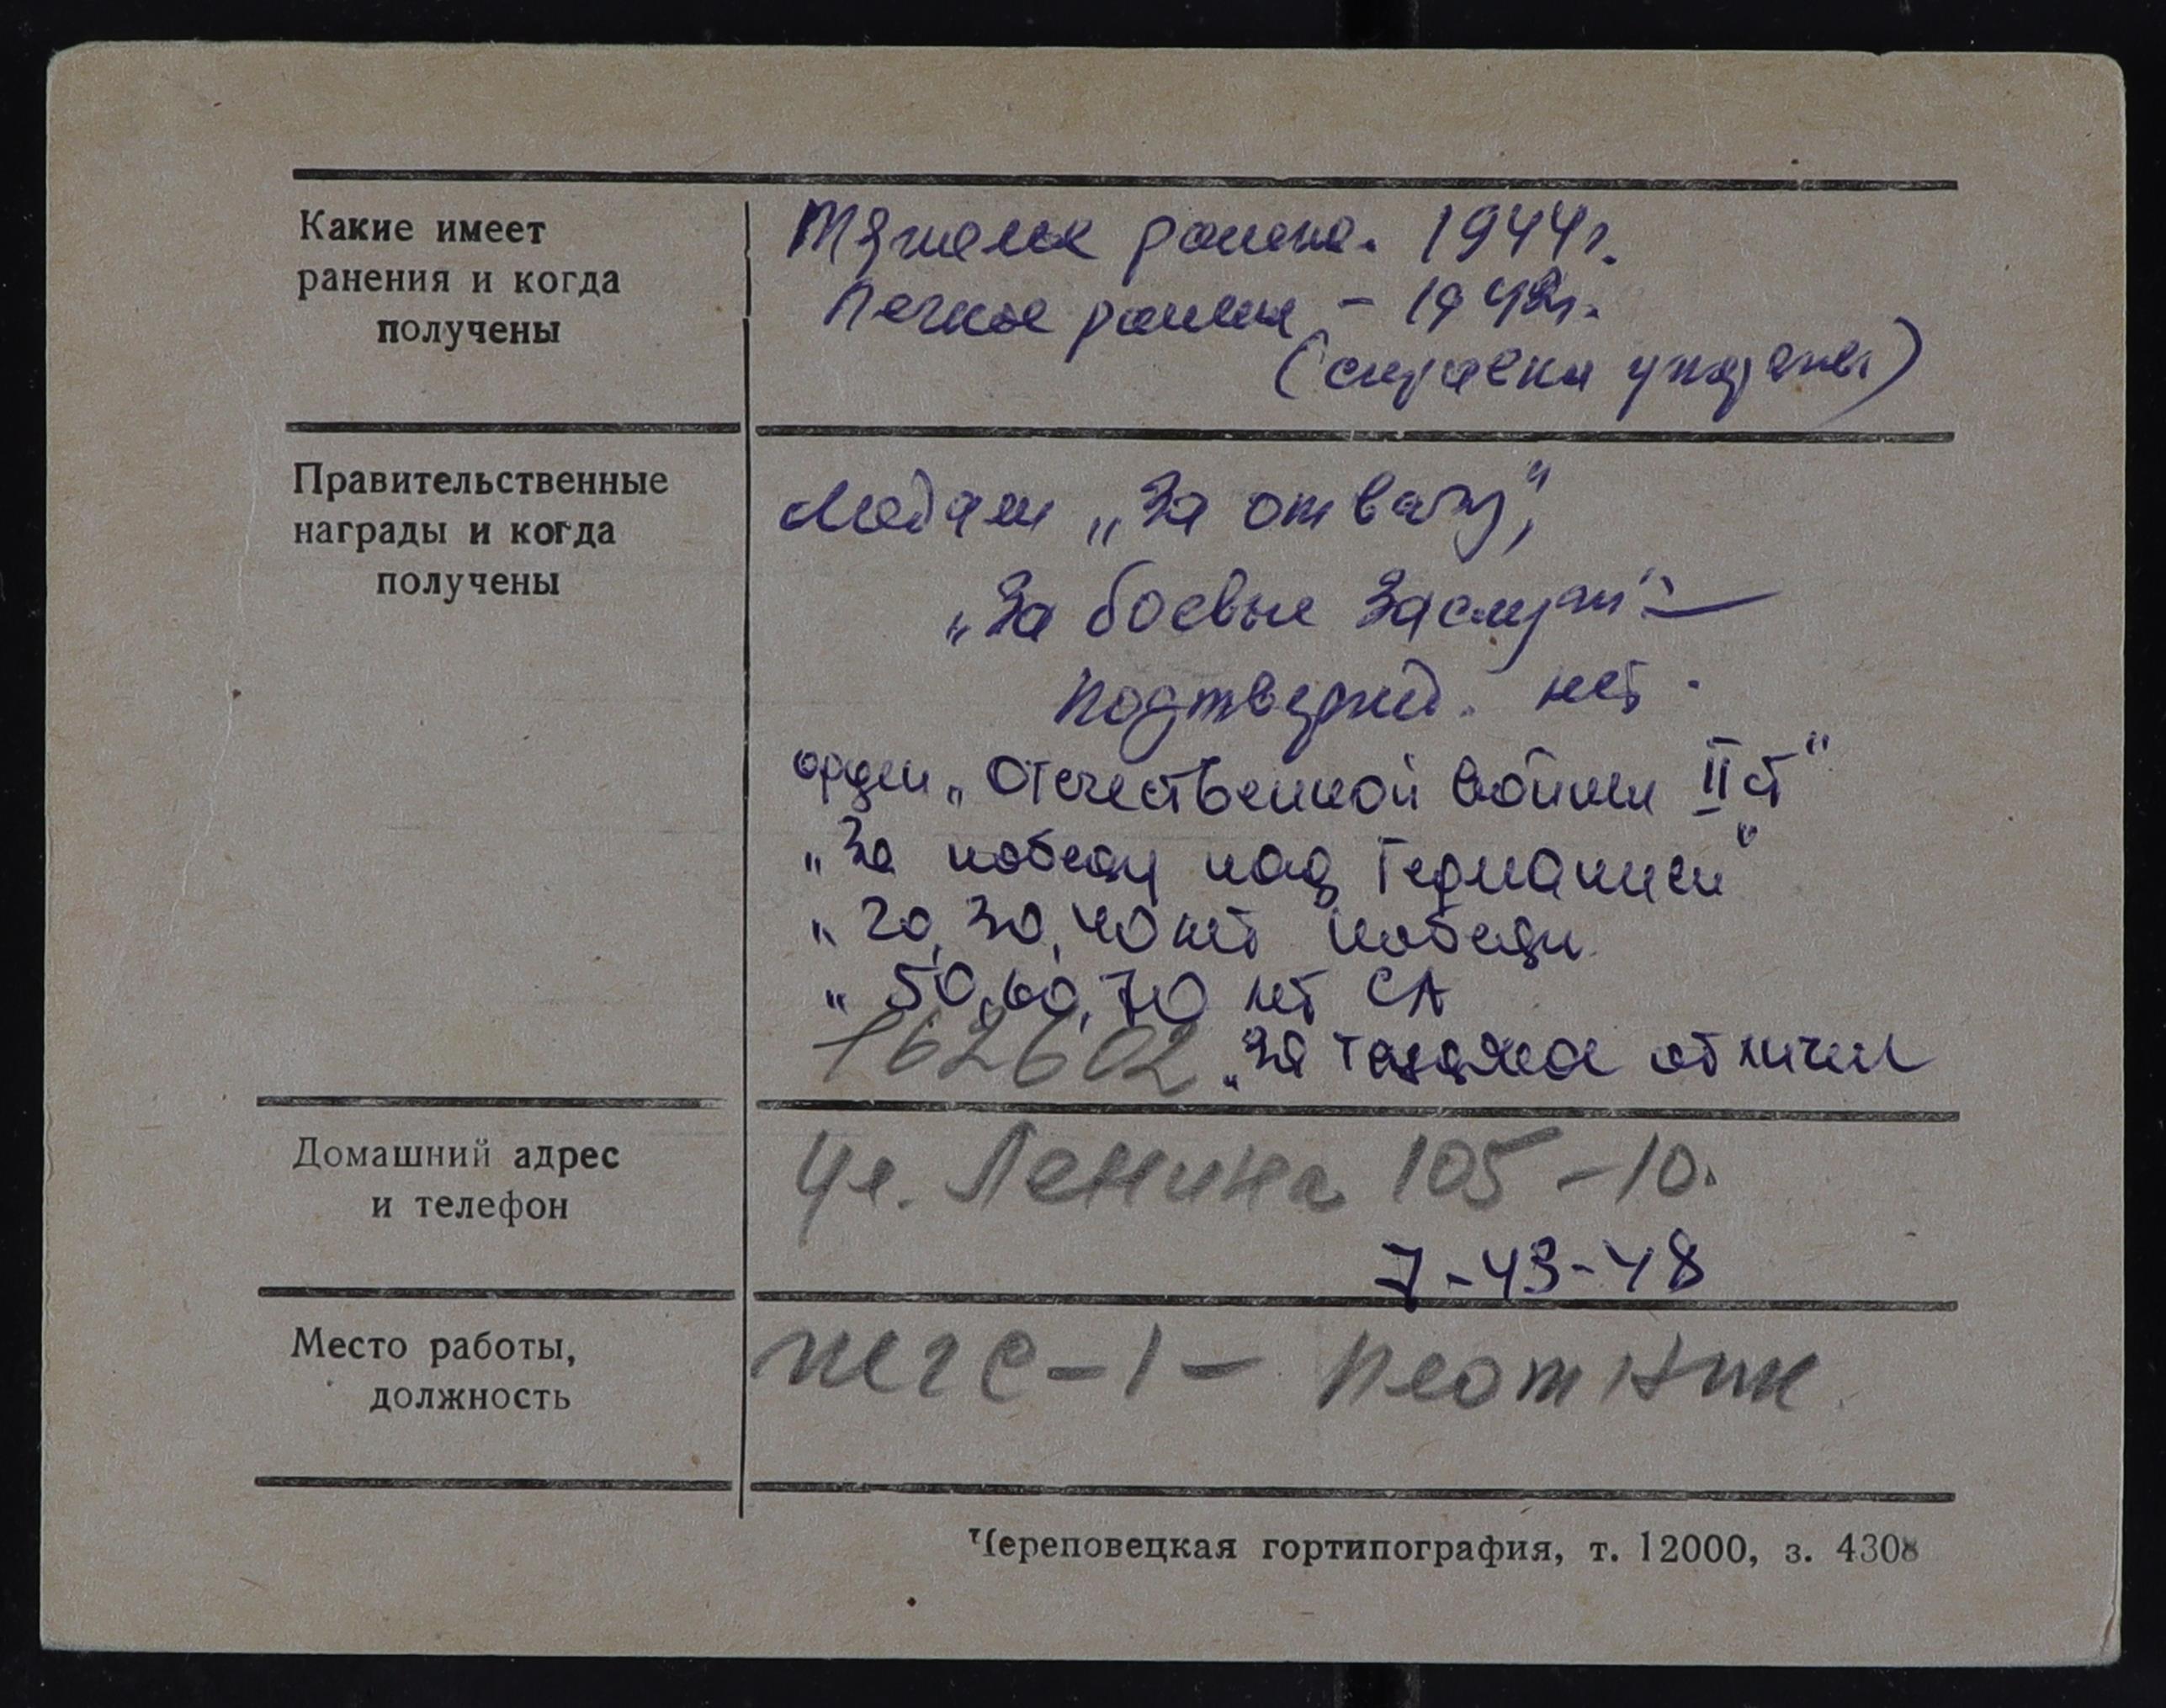 Какие имеет
ранения и когда
получены
Тяжелое ранение. 1944г.
Легкое ранение - 1942г.
(справки утеряны)
Правительственные
награды и когда
получены
Медали „За отвагу",
„За боевые заслуги" —
подтвержд. нет.
орден „Отечественной войны II ст"
„За победу над Германией"
„20, 30, 40 лет победы
„50, 60, 70 лет СА
162602 „За отличие
Домашний адрес
и телефон
ул. Ленина 105-10.
7-43-48
Место работы,
должность
-1- Плотник.
Череповецкая гортипография, т. 12000, з. 4308